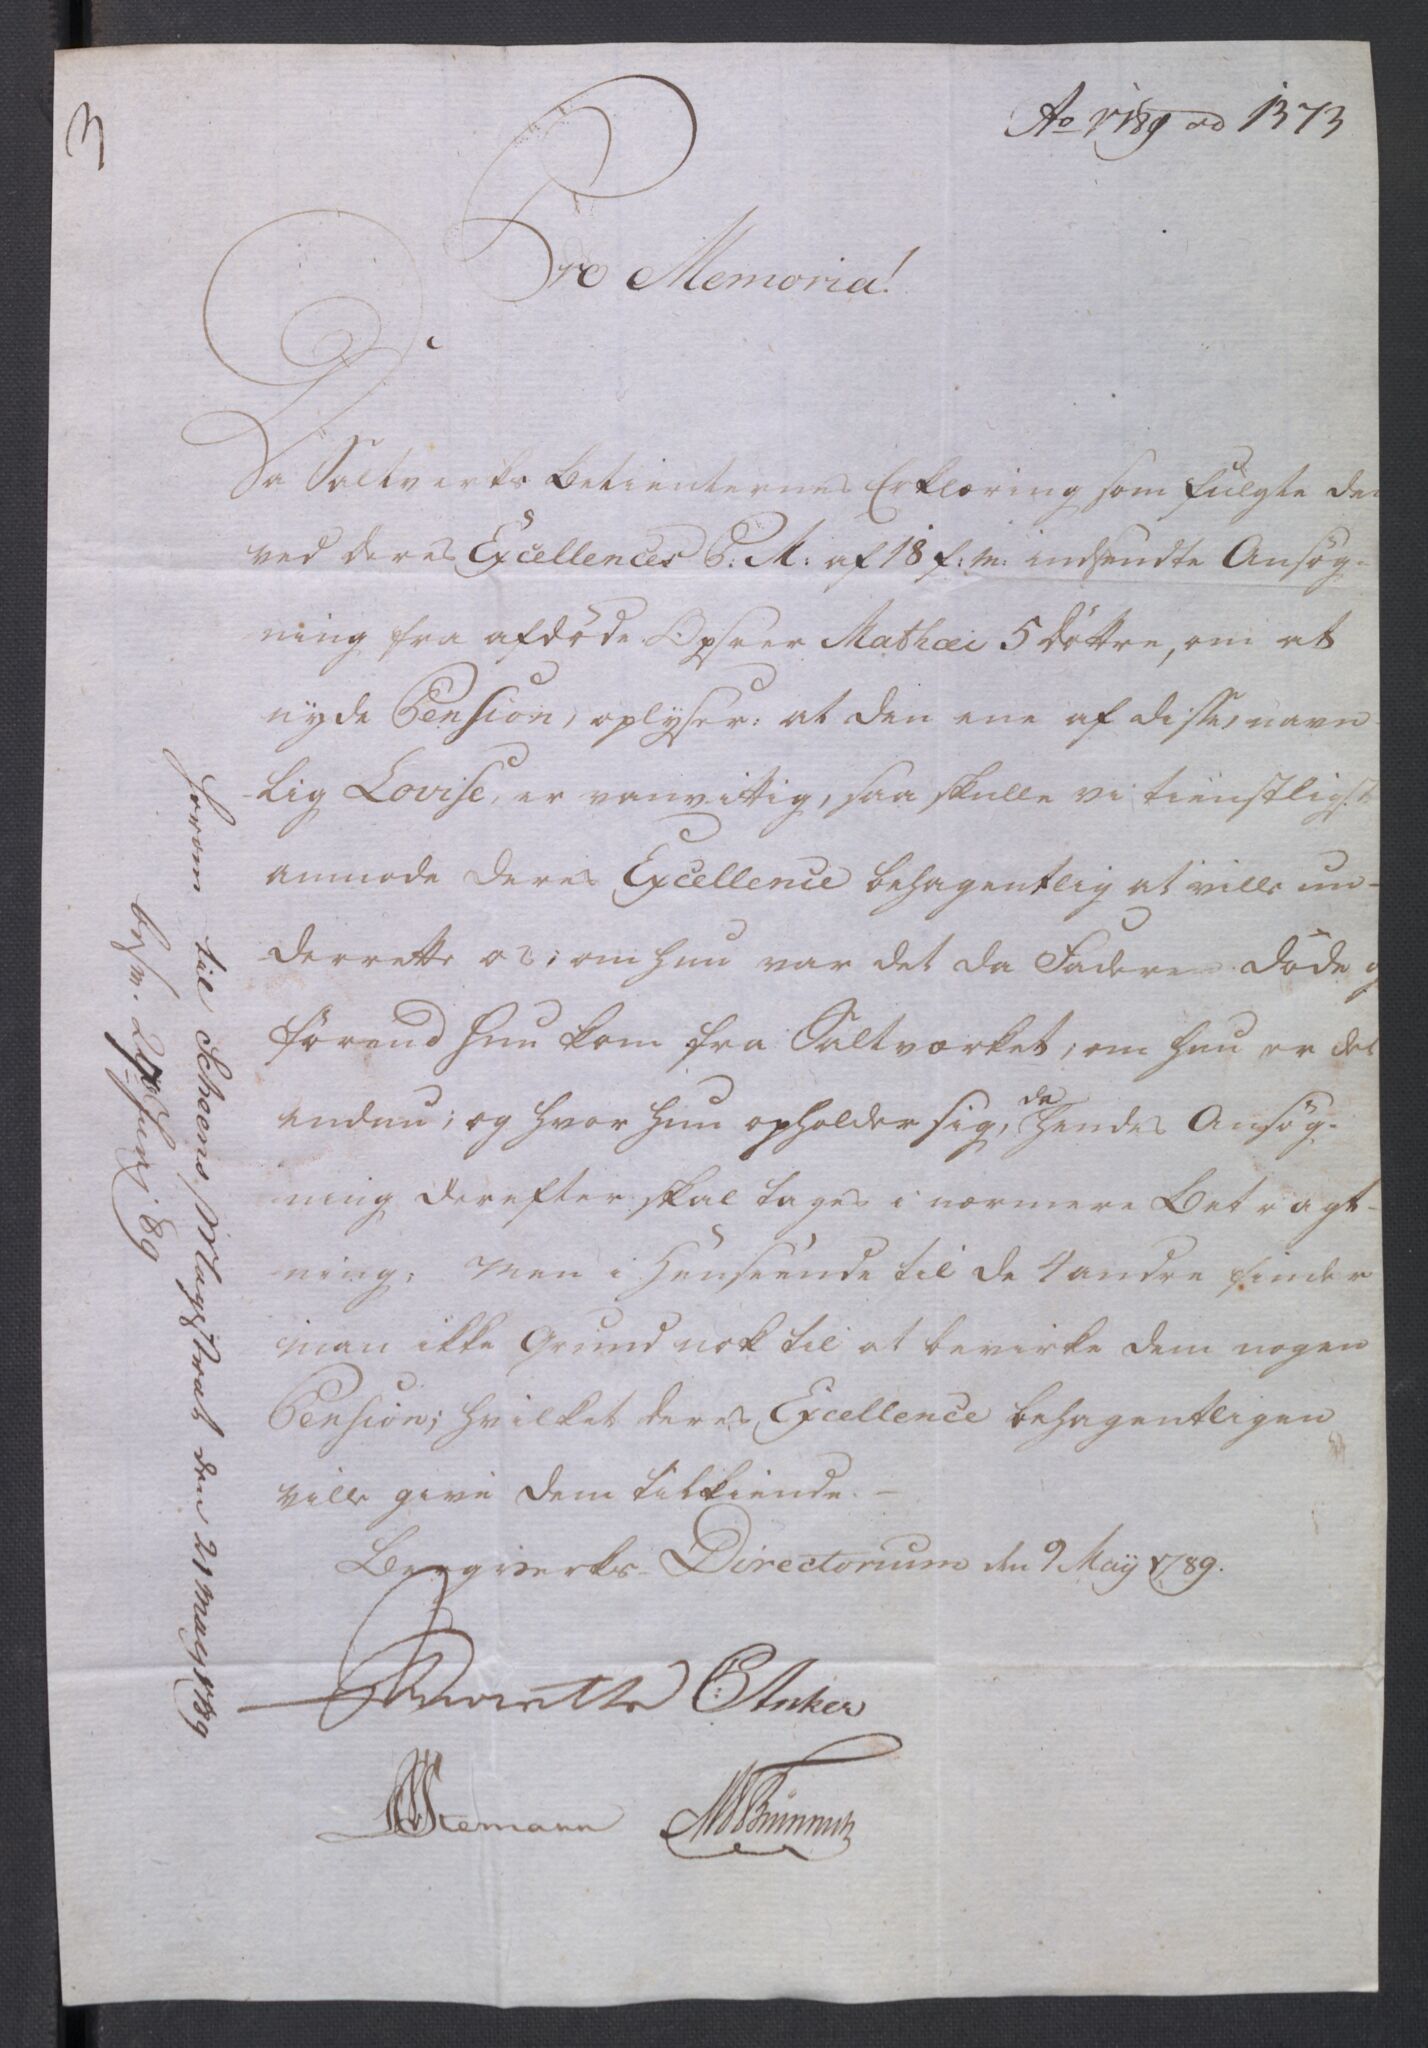 3
Ao 1789 No 1373
Pro Memoria!
Da Saltverks Betienternes Erklæring som fulgte den
ved deres Excellences P. M: af 18 f: m: indsendte Ansøg-
ning fra afdöde Opseer Mathæi 5 döttre, om at
nyde Pension, oplyser: at den ene af disse, navn-
lig Lovise, er vanvittig, saa skulle vi tienstligst
anmode Deres Excellence behagentlig at ville un-
derrette os; om hun var det da Faderen döde, og
förend hun kom fra Saltværket; om hun er det
endnu; og hvor hun opholder sig, da hendes Ansøg-
ning derefter skal tages i nærmere Betragt-
ning; Men i Henseende til de 4 andre finder
man ikke Grund nok til at bevirke dem nogen
Pension; hvilket deres Excellence behagentligen
ville give dem tilkiende. –
Bergverks- Directorium den 9 May 1789.
C Anker
Stemann MTBrünnich
til Scheens Magistrat den 21 May 1789
besv. Junj 89